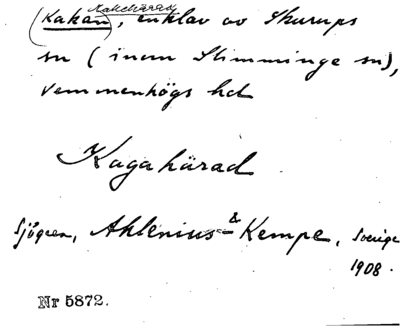 Kakehärad
(Kakan), enklav av Skurups
sn (inom Slimminge sn),
Vemmenhögs hd
Kagahärad
Sjögren, Ahlenius & Kempe, Sverige
1908.
Nr 5872.